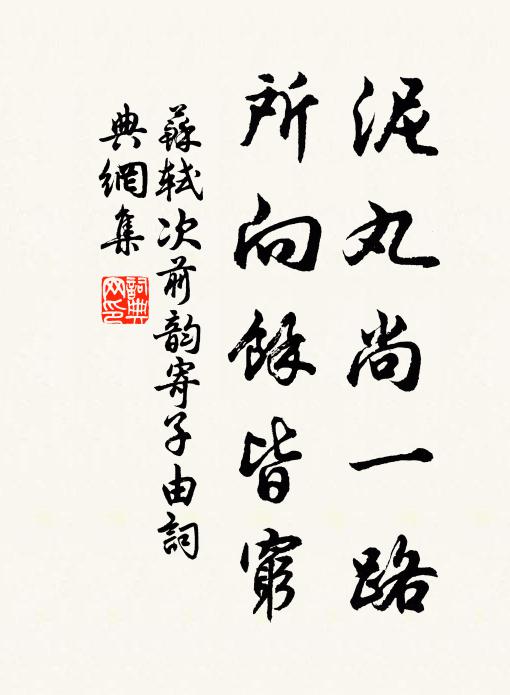 泥丸尚一路
所向餘皆窮
蘇軾次前韵寄子由詞
典網集
詞典
网印